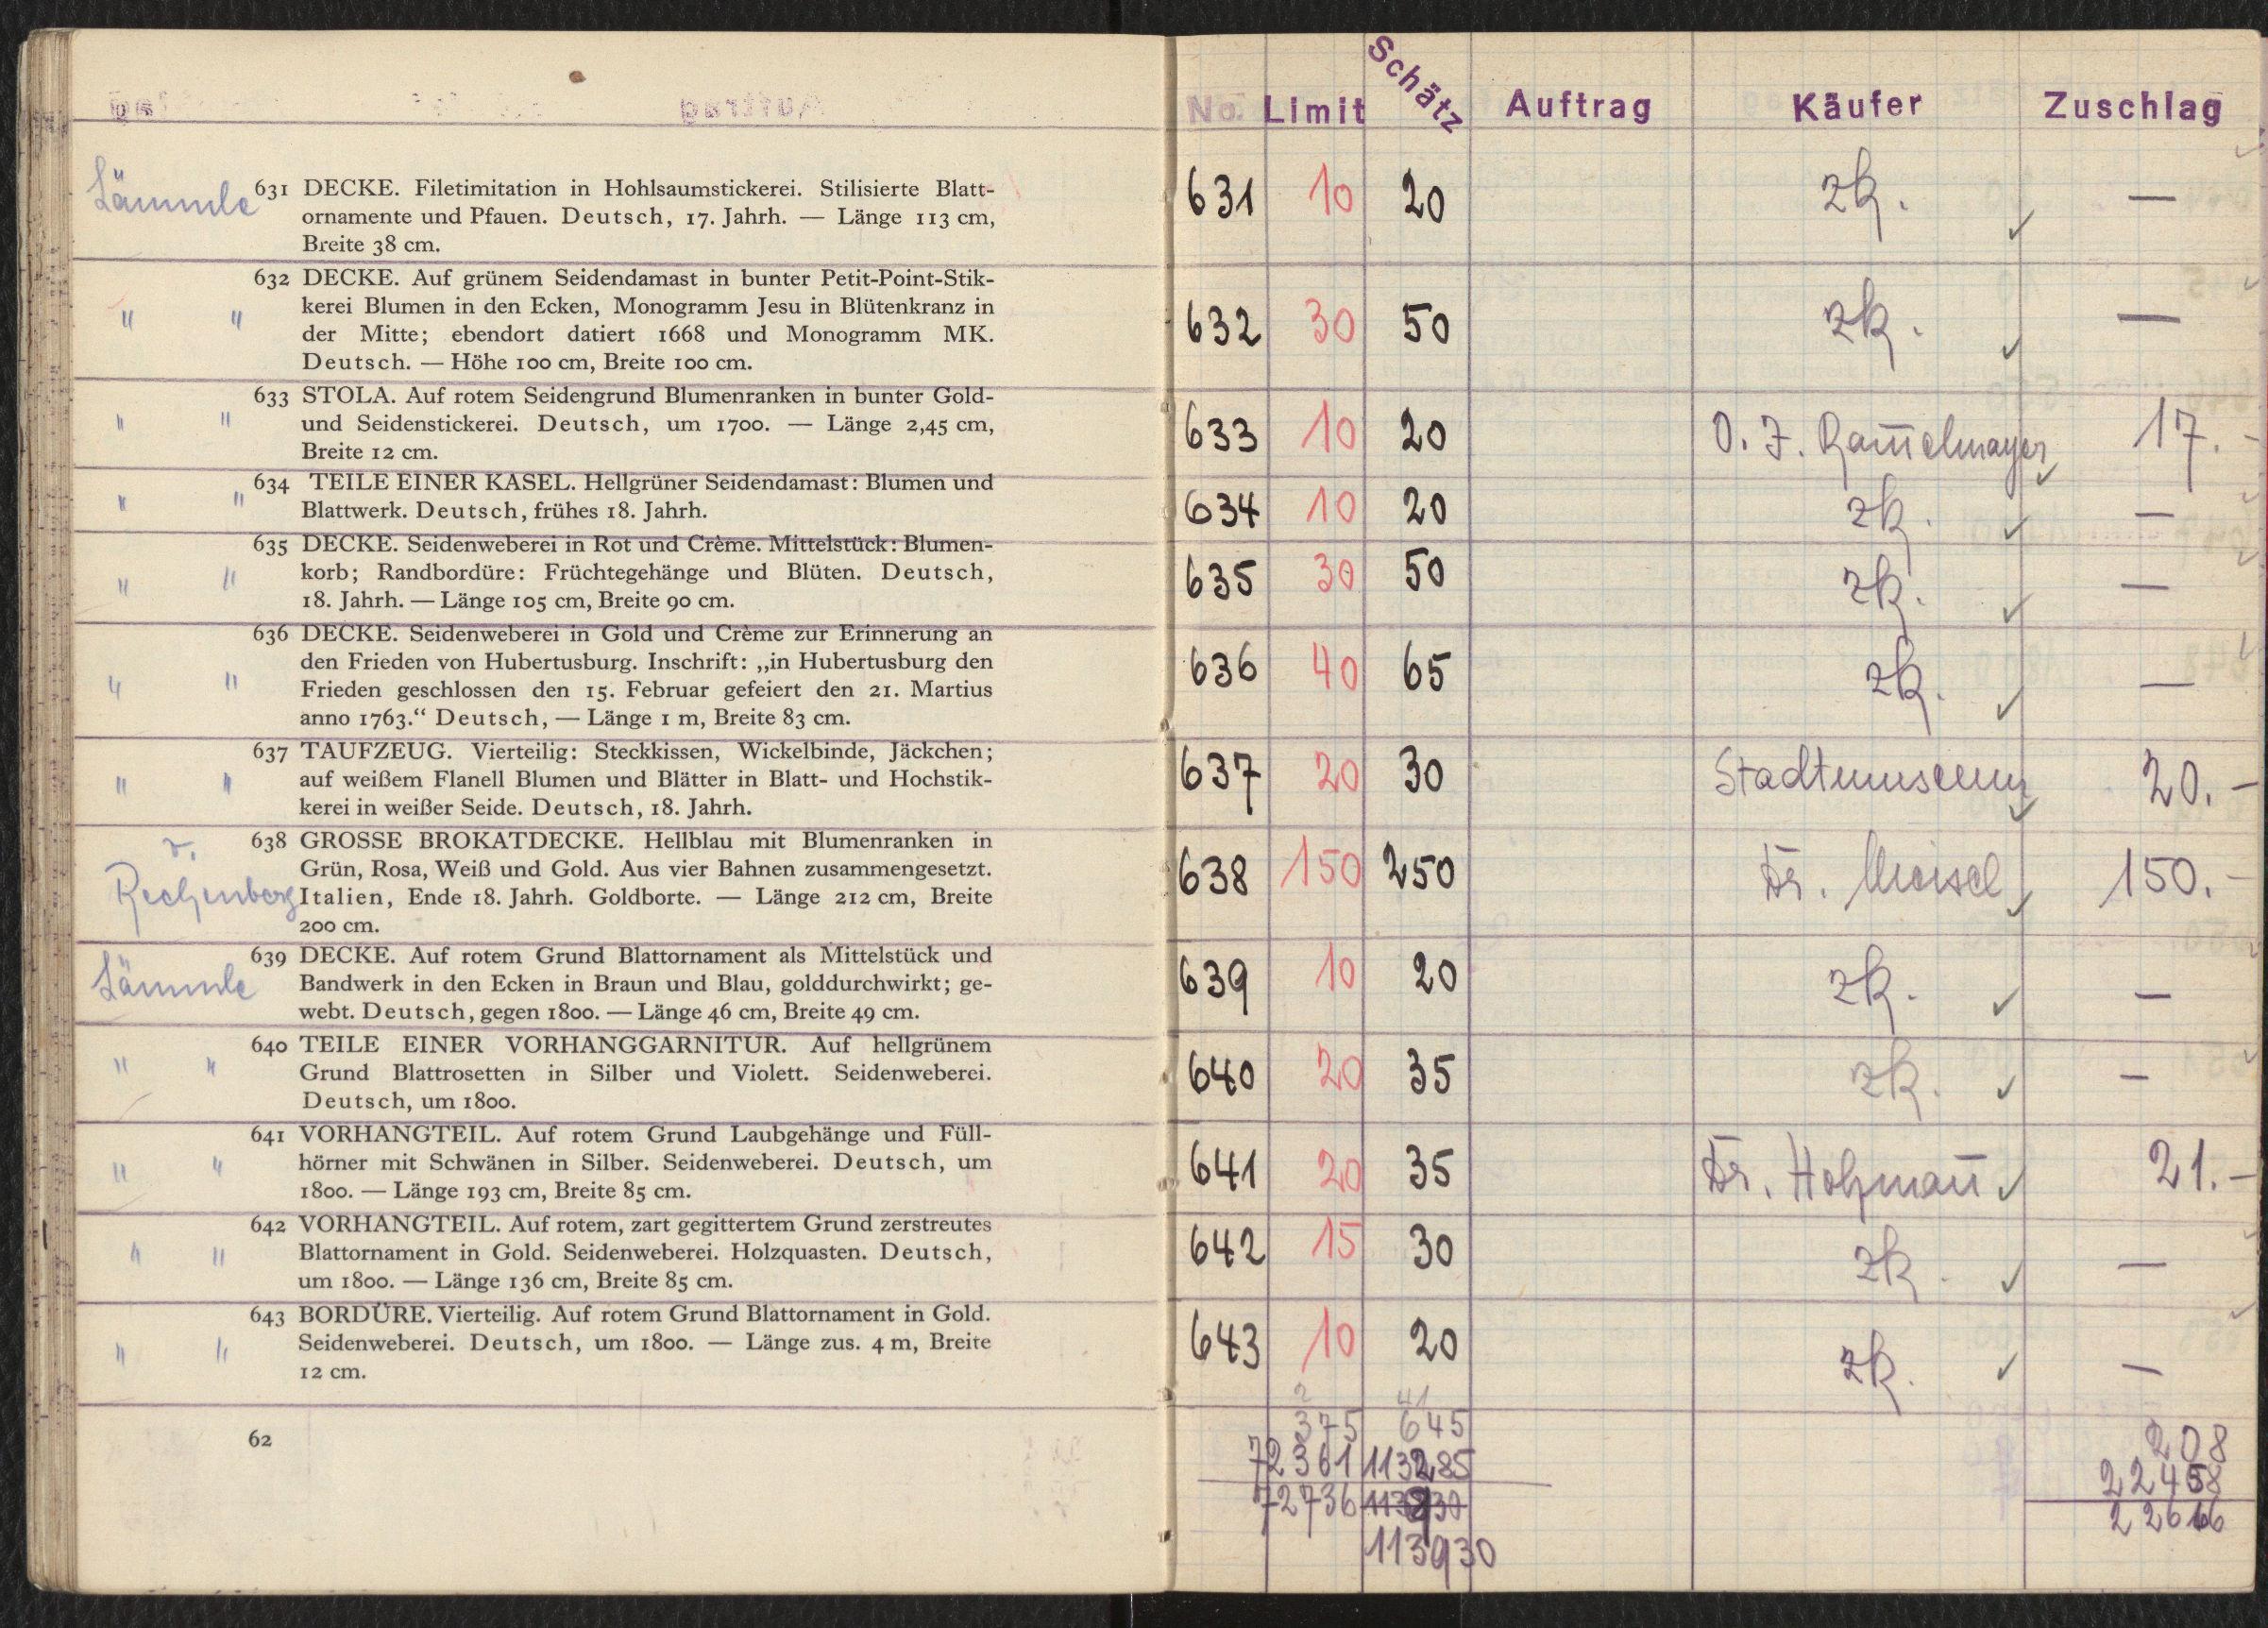 Lämmle
631 DECKE. Filetimitation in Hohlsaumstickerei. Stilisierte Blatt-
ornamente und Pfauen. Deutsch, 17. Jahrh. — Länge 113 cm,
Breite 38 cm.
" "
632 DECKE. Auf grünem Seidendamast in bunter Petit-Point-Stik-
kerei Blumen in den Ecken, Monogramm Jesu in Blütenkranz in
der Mitte; ebendort datiert 1668 und Monogramm MK.
Deutsch. — Höhe 100 cm, Breite 100 cm.
" "
633 STOLA. Auf rotem Seidengrund Blumenranken in bunter Gold-
und Seidenstickerei. Deutsch, um 1700. — Länge 2,45 cm,
Breite 12 cm.
" "
634 TEILE EINER KASEL. Hellgrüner Seidendamast: Blumen und
Blattwerk. Deutsch, frühes 18. Jahrh.
" "
635 DECKE. Seidenweberei in Rot und Crème. Mittelstück: Blumen-
korb; Randbordüre: Früchtegehänge und Blüten. Deutsch,
18. Jahrh. — Länge 105 cm, Breite 90 cm.
" "
636 DECKE. Seidenweberei in Gold und Crème zur Erinnerung an
den Frieden von Hubertusburg. Inschrift: „in Hubertusburg den
Frieden geschlossen den 15. Februar gefeiert den 21. Martius
anno 1763.“ Deutsch, — Länge 1 m, Breite 83 cm.
" "
637 TAUFZEUG. Vierteilig: Steckkissen, Wickelbinde, Jäckchen;
auf weißem Flanell Blumen und Blätter in Blatt- und Hochstik-
kerei in weißer Seide. Deutsch, 18. Jahrh.
v.
Rechenberg
638 GROSSE BROKATDECKE. Hellblau mit Blumenranken in
Grün, Rosa, Weiß und Gold. Aus vier Bahnen zusammengesetzt.
Italien, Ende 18. Jahrh. Goldborte. — Länge 212 cm, Breite
200 cm.
Lämmle
639 DECKE. Auf rotem Grund Blattornament als Mittelstück und
Bandwerk in den Ecken in Braun und Blau, golddurchwirkt; ge-
webt. Deutsch, gegen 1800. — Länge 46 cm, Breite 49 cm.
" "
640 TEILE EINER VORHANGGARNITUR. Auf hellgrünem
Grund Blattrosetten in Silber und Violett. Seidenweberei.
Deutsch, um 1800.
" "
641 VORHANGTEIL. Auf rotem Grund Laubgehänge und Füll-
hörner mit Schwänen in Silber. Seidenweberei. Deutsch, um
1800. — Länge 193 cm, Breite 85 cm.
" "
642 VORHANGTEIL. Auf rotem, zart gegittertem Grund zerstreutes
Blattornament in Gold. Seidenweberei. Holzquasten. Deutsch,
um 1800. — Länge 136 cm, Breite 85 cm.
" "
643 BORDÜRE. Vierteilig. Auf rotem Grund Blattornament in Gold.
Seidenweberei. Deutsch, um 1800. — Länge zus. 4 m, Breite
12 cm.
62
No. Limit Schätz Auftrag Käufer Zuschlag
631 10 20 zk. —
632 30 50 zk. —
633 10 20 O. J. Ram̄elmayer 17.-
634 10 20 zk. —
635 30 50 zk. —
636 40 65 zk. —
637 20 30 Stadtmuseum 20.-
638 150 250 Dr. Meisel 150.-
639 10 20 zk. —
640 20 35 zk. —
641 20 35 Dr. Holzman̄ 21.-
642 15 30 zk. —
643 10 20 zk. —
2 41
375 645 208
72361 113285 22458
72736 22666
113930